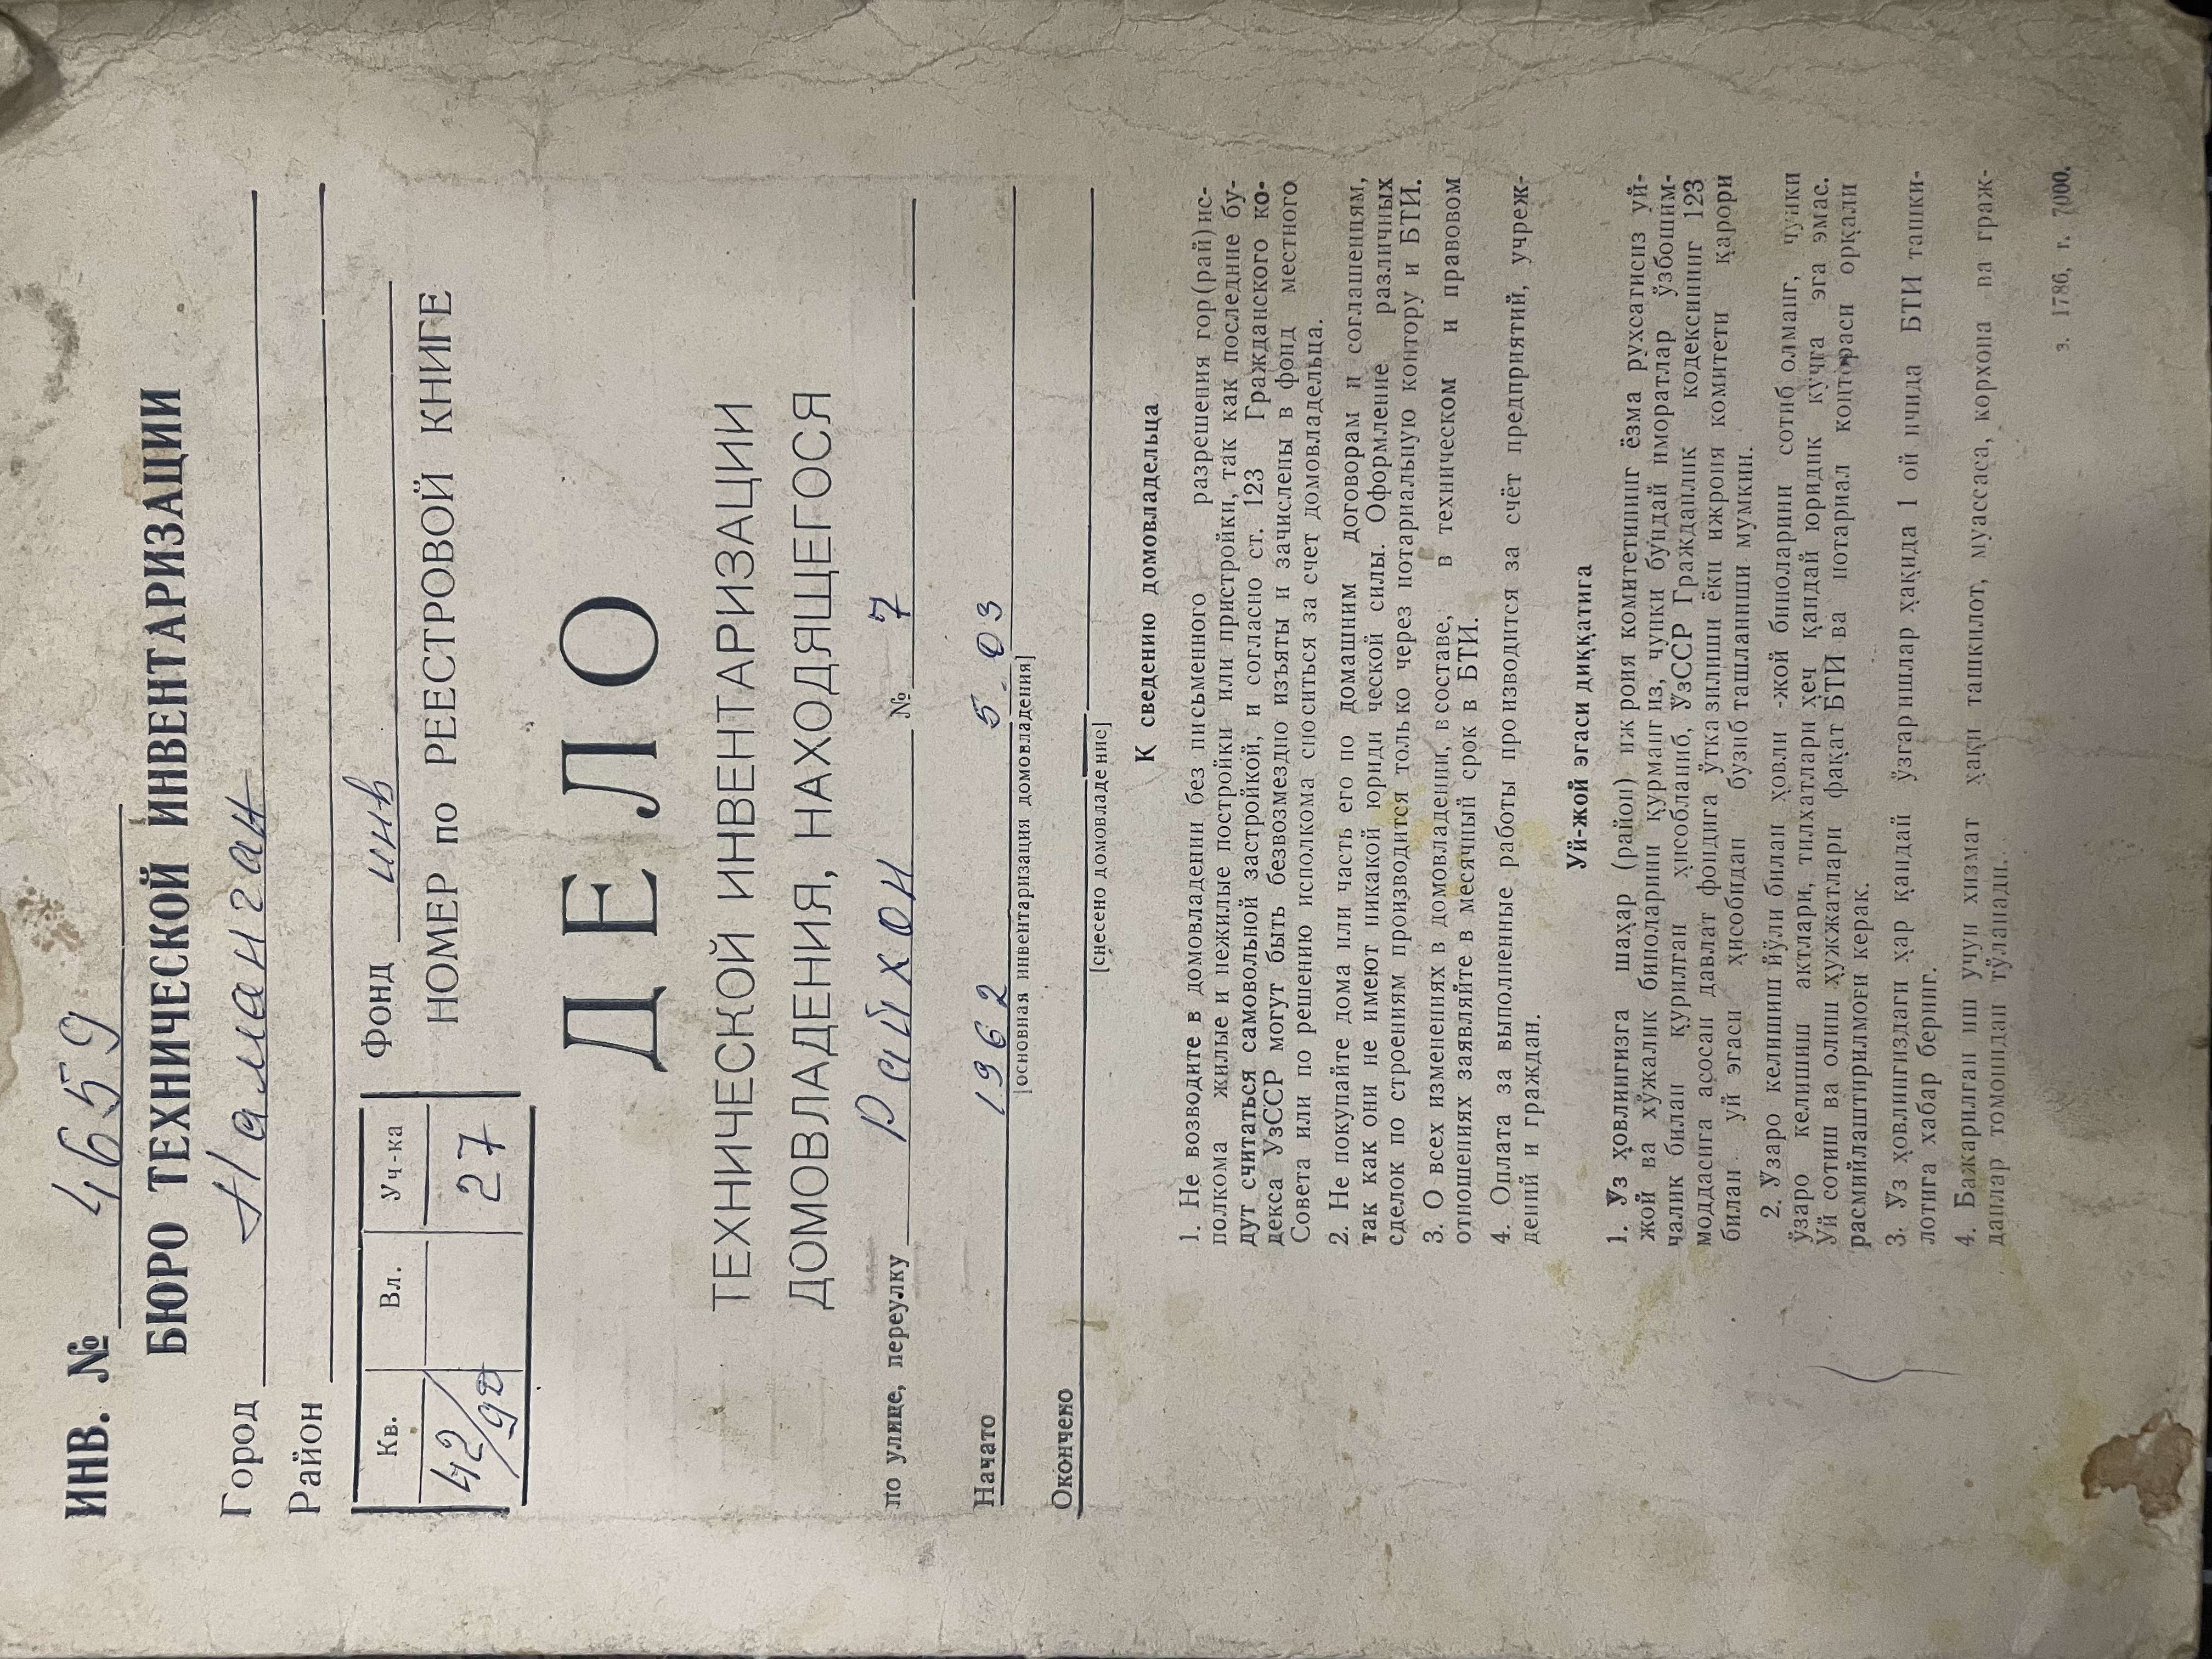 ИНВ. № 4659
БЮРО ТЕХНИЧЕСКОЙ ИНВЕНТАРИЗАЦИИ
Город Наманган
Район
Кв. Вл. Уч-ка Фонд инв
42/92 27
НОМЕР по РЕЕСТРОВОЙ КНИГЕ
ДЕЛО
ТЕХНИЧЕСКОЙ ИНВЕНТАРИЗАЦИИ
ДОМОВЛАДЕНИЯ, НАХОДЯЩЕГОСЯ
по улице, переулку Райхон № 7
Начато 1962 5-03
[основная инвентаризация домовладения]
Окончено
[снесено домовладение]
К сведению домовладельца
1. Не возводите в домовладении без письменного разрешения гор(рай)ис-
полкома жилые и нежилые постройки или пристройки, так как последние бу-
дут считаться самовольной застройкой, и согласно ст. 123 Гражданского ко-
декса УзССР могут быть безвозмездно изъяты и зачислены в фонд местного
Совета или по решению исполкома сноситься за счет домовладельца.
2. Не покупайте дома или часть его по домашним договорам и соглашениям,
так как они не имеют никакой юриди ческой силы. Оформление различных
сделок по строениям производится только через нотариальную контору и БТИ.
3. О всех изменениях в домовладении, в составе, в техническом и правовом
отношениях заявляйте в месячный срок в БТИ.
4. Оплата за выполненные работы производится за счёт предприятий, учреж-
дений и граждан.
Уй-жой эгаси диққатига
1. Уз ҳовлингизга шаҳар (район) ижроия комитетининг ёзма рухсатисиз уй-
жой ва хўжалик биноларини қурманг из, чунки бундай иморатлар ўзбошим-
чалик билан қурилган ҳисобланиб, ЎзССР Гражданлик кодексининг 123
моддасига асосан давлат фондига ўтказилиши ёки ижроия комитети қарори
билан уй эгаси ҳисобидан бузиб ташланиши мумкин.
2. Ўзаро келишиш йўли билан ҳовли -жой биноларини сотиб олманг, чунки
ўзаро келишиш актлари, тилхатлари ҳеч қандай юридик кучга эга эмас.
Уй сотиш ва олиш ҳужжатлари фақат БТИ ва нотариал контораси орқали
расмийлаштирилмоғи керак.
3. Ўз ҳовлингиздаги ҳар қандай ўзгаришлар ҳақида 1 ой ичида БТИ ташки-
лотига хабар беринг.
4. Бажарилган иш учун хизмат ҳақи ташкилот, муассаса, корхона ва граж-
данлар томонидан тўланади.
з. 1786, г. 7000.